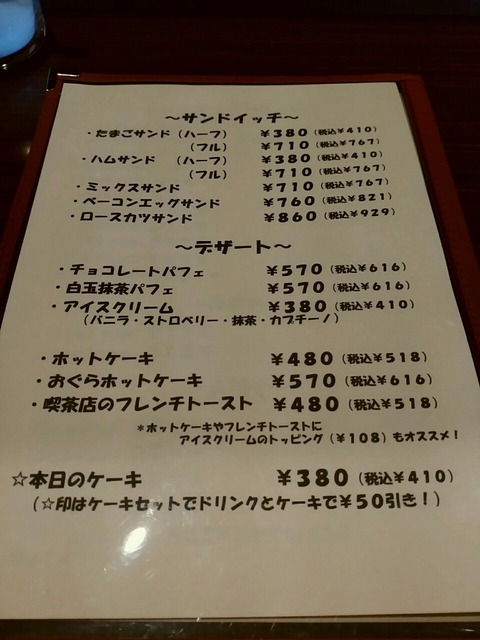 ～サンドイッチ～
・たまごサンド（ハーフ） ￥380（税込￥410）
（フル） ￥710（税込￥767）
・ハムサンド （ハーフ） ￥380（税込￥410）
（フル） ￥710（税込￥767）
・ミックスサンド ￥710（税込￥767）
・ベーコンエッグサンド ￥760（税込￥821）
・ロースカツサンド ￥860（税込￥929）
～デザート～
・チョコレートパフェ ￥570（税込￥616）
・白玉抹茶パフェ ￥570（税込￥616）
・アイスクリーム ￥380（税込￥410）
（バニラ・ストロベリー・抹茶・カプチーノ）
・ホットケーキ ￥480（税込￥518）
・おぐらホットケーキ ￥570（税込￥616）
・喫茶店のフレンチトースト ￥480（税込￥518）
＊ホットケーキやフレンチトーストに
アイスクリームのトッピング（￥108）もオススメ！
☆本日のケーキ ￥380（税込￥410）
（☆印はケーキセットでドリンクとケーキで￥50引き！）